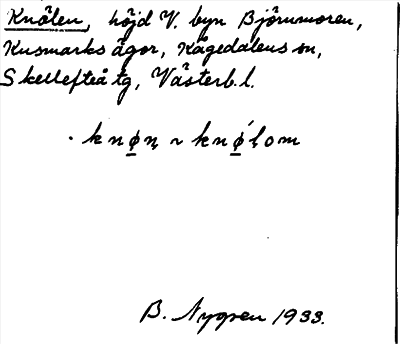 Knölen, höjd V. byn Björnmoren,
Kusmarks ägor, Kågedalens sn,
Skellefteå tg, Västerb. l.
· knø̱ṇ ~ knǿ̱ḷom
B. Nygren 1933.